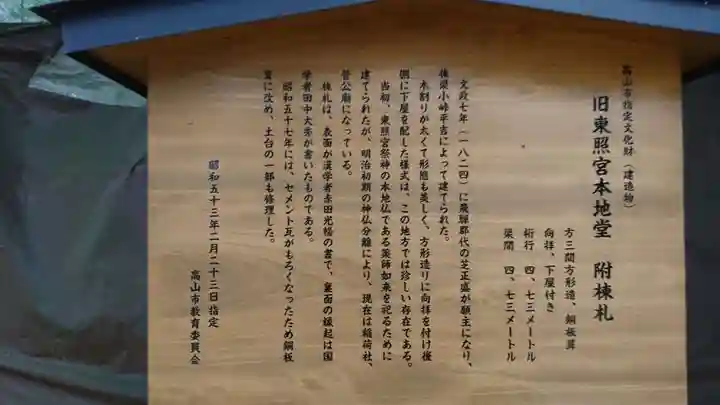 高山市指定文化財(建造物)
旧東照宮本地堂 附棟札
方三間方形造、銅板葺
向拝、下屋付き
桁行 四、七三メートル
梁間 四、七三メートル
文政七年(一八二四)に飛騨郡代の芝正盛が願主になり、
棟梁小峠平吉によって建てられた。
木割りが太くて形態も美しく、方形造りに向拝を付け後
側に下屋を配した様式は、この地方では珍しい存在である。
当初、東照宮祭神の本地仏である薬師如来を祀るために
建てられたが、明治初期の神仏分離により、現在は稲荷社、
菅公廟になっている。
棟札は、表面が漢学者赤田光暢の書で、裏面の縁起は国
学者田中大秀が書いたものである。
昭和五十七年には、セメント瓦がもろくなったため銅板
葺に改め、土台の一部も修理した。
昭和五十三年二月二十三日指定
高山市教育委員会